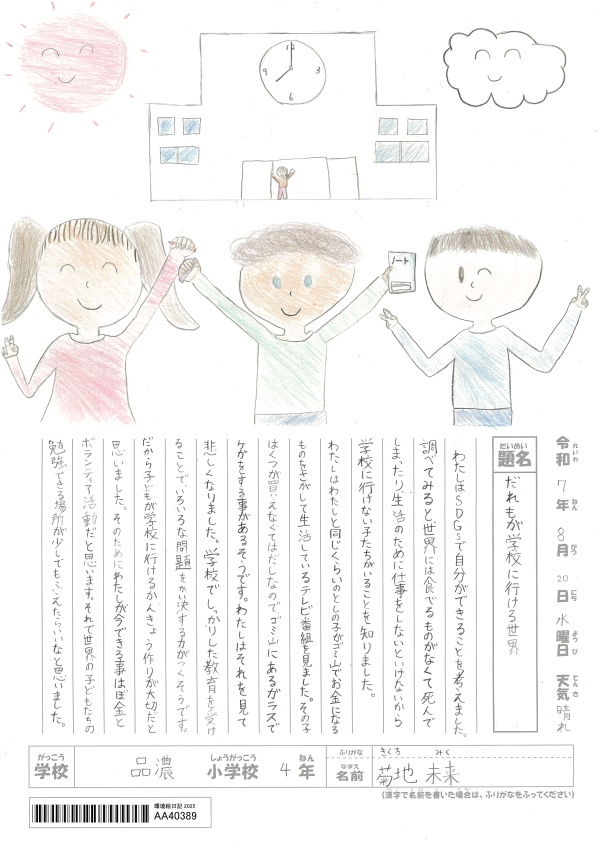 12
3
6
9
ノート
令和 れいわ 7年 ねん 8月 がつ 20日 にち 水曜日 ようび 天気 てんき 晴れ
題名 だいめい だれもが学校に行ける世界
わたしはSDGsで自分ができることを考えました。
調べてみると世界には食べるものがなくて死んで
しまったり生活のために仕事をしないといけないから
学校に行けない子たちがいることを知りました。
わたしはわたしと同じくらいのとしの子がゴミ山でお金になる
ものをさがして生活しているテレビ番組を見ました。その子
はくつが買いえなくてはだしなのでゴミ山にあるガラスで
ケガをする事があるそうです。わたしはそれを見て
悲しくなりました。学校でしっかりした教育を受け
ることでいろいろな問題をかい決する力がつくそうです。
だから子どもが学校に行けるかんきょう作りが大切だと
思いました。そのためにわたしが今できる事はぼ金と
ボランティア活動だと思います。それで世界の子どもたちの
勉強できる場所が少しでもふえたらいいなと思いました。
学校 がっこう 品濃 小学校 しょうがっこう 4年 ねん
ふりがな きくち みく
名前 なまえ 菊地 未来
(漢字で名前を書いた場合は、ふりがなをふってください)
環境絵日記 2025
AA40389